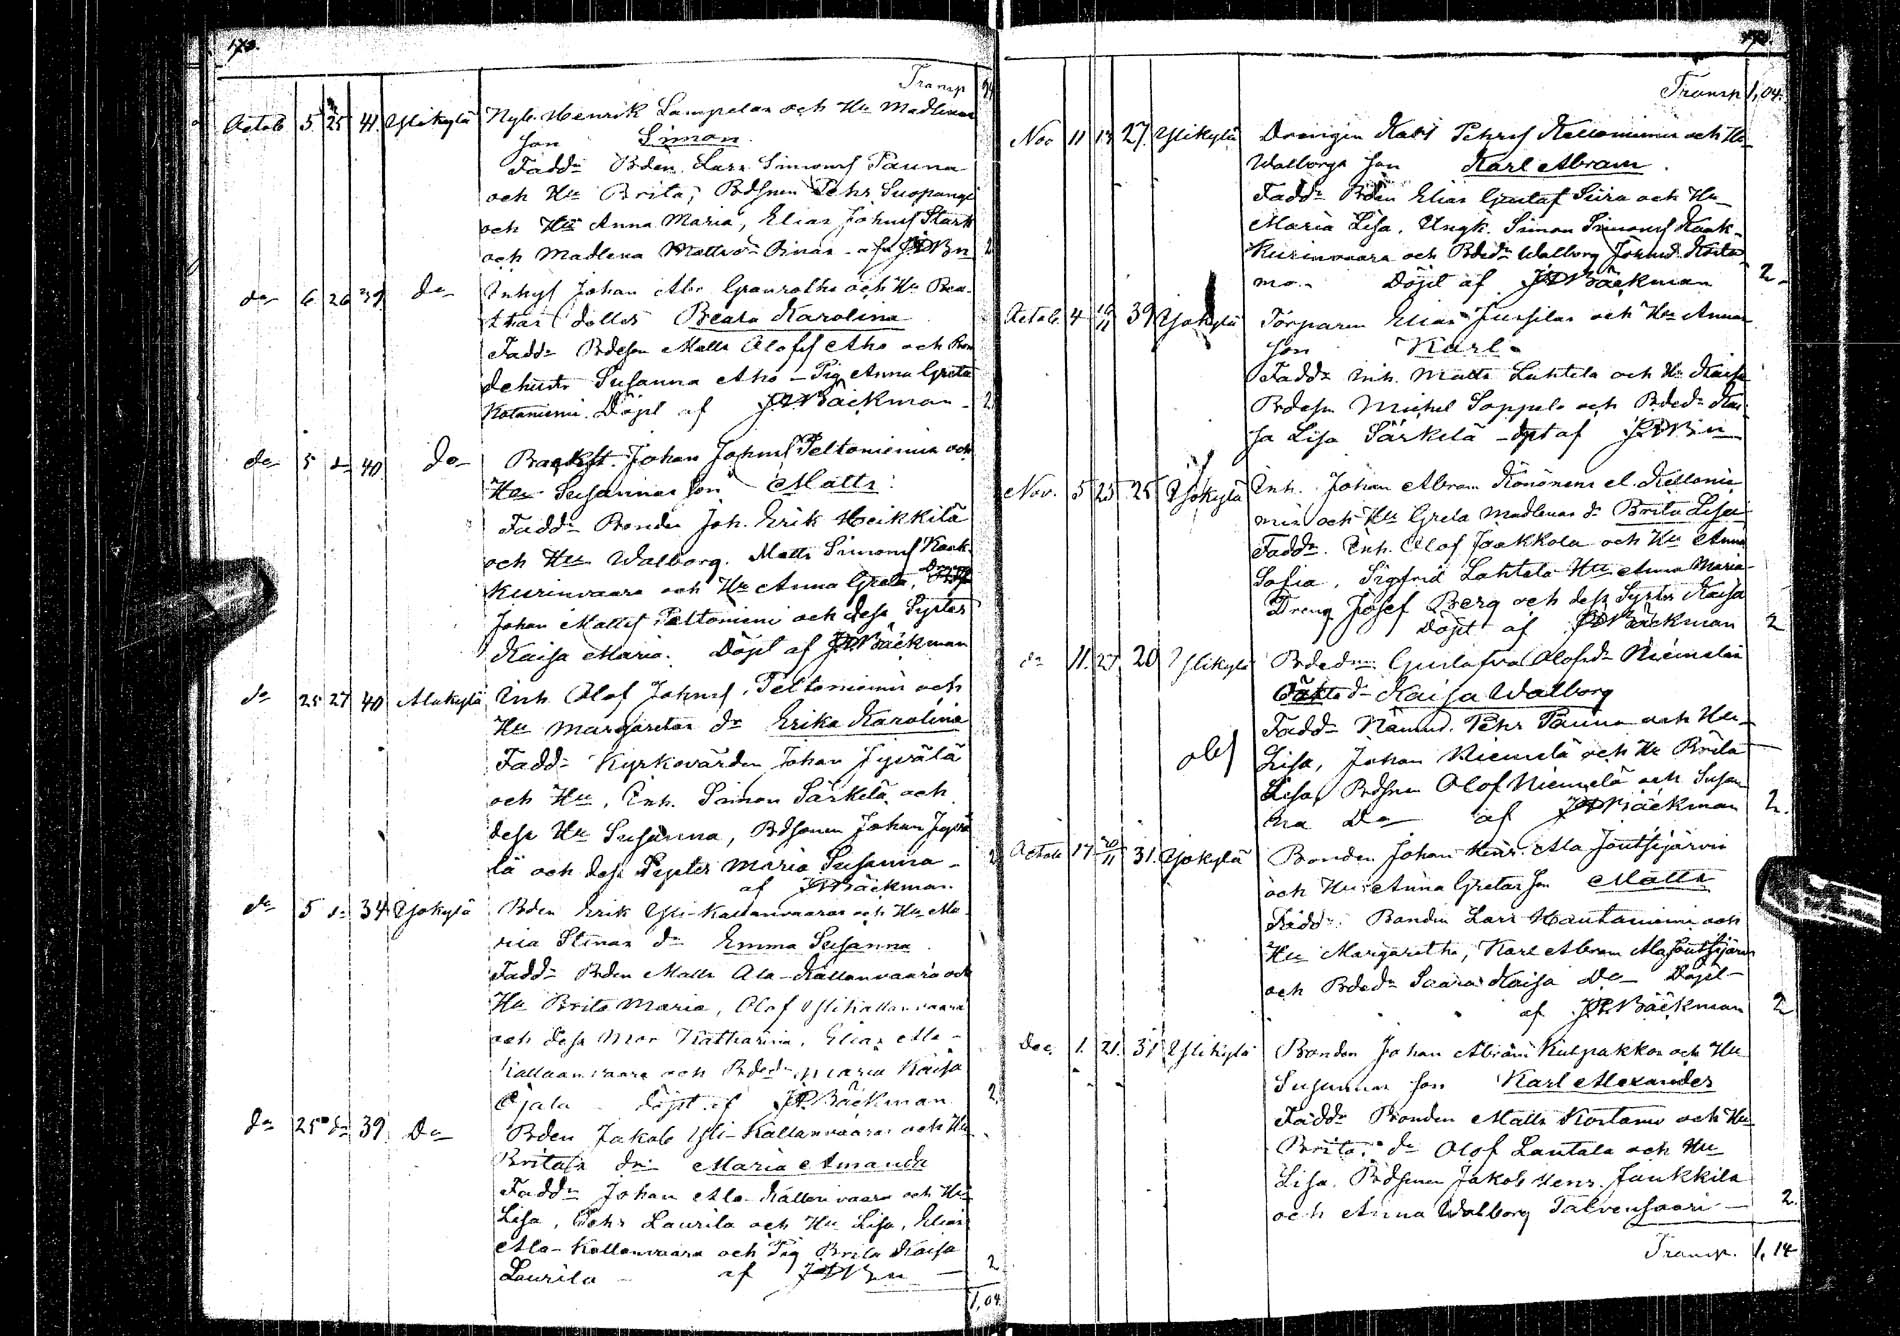 170.
Transp
Octob 5 25 41. Ylikylä Nyb. Henrik Lampelas och Hu Madlenas
son Simon.
Fadd: Bden Lars Simonss Pauna
och Hu Brita, Bdsnen Pehr Suopangi
och Hu Anna Maria, Elias Johnss Stark
och Madlena Mattsd: 2
do 6 26 39 do Inhys Johan Abr. Granroths och Hu Bea-
tas dotter Beata Karolina
Fadd: Bdesn Matts Olofss Aho och Bon
dehustr Susanna Aho – Pig Anna Greta
Kotaniemi. Döpt af JA Bäckman 2
do 5 do 40. do Backst. Johan Johnss Peltoniemis och
Hu Susannas son Matts.
Fadd: Bonden Joh. Erik Heikkilä
och Hu Walborg. Matts Simonss Kaak-
kurinvaara och Hu Anna Greta, Dreng
Johan Mattss Peltoniemi och dess Syster
Kaisa Maria. Döpt af JA Bäckman
do 25 27 40 Alakylä Inh. Olof Johnss. Peltoniemis och
Hu Margaretas dr Erika Karolina
Fadd: Kyrkovärden Johan Jyrälä
och Hu, Inh. Simon Särkelä och
dess Hu Susanna, Bdsonen Johan Jyrä
lä och dess Syster Maria Susanna – 2
af JA Bäckman
do 5 do 34. Yjokylä Bden Erik Yli-Kallanvaaras och Hu Ma-
ria Stinas dr Emma Susanna.
Fadd: Bden Matts Ala-Kallanvaara och
Hu Brita Maria, Olof Ylikallanvaara
och dess Mor Katharina, Elias Ala-
Kallaanvaara och Bdedr Maria Kaisa
Ojala – döpt af JA Bäckman 2
do 25 do 39 Do Bden Jakob Yli-Kallanvaaras och Hu
Britas dr Maria Amanda
Fadd: Johan Ala-Kallanvaara och Hu
Lisa, Pehr Laurila och Hu Lisa, Elias
Ala-Kallanvaara och Pig Brita Kaisa
Laurila – af JABn 2
1,04
Transp 1,04.
Nov 11 13 27. Ylikylä Drengen Karl Pehrss Kelloniemis och Hu
Walborgs son Karl Abram.
Fadd: Bden Elias Gustaf Siira och Hu
Maria Lisa. Ungk. Simon Simonss Kaak-
kurinvaara och Bdedr Walborg Johnsd: Kosta-
mo. Döpt af JA Bäckman 2
Octob. 4 11 39 Yjokylä Torparen Elias Jussilas och Hu Annas
son Karl.
Fadd: Inh. Matts Lahtela och Hu Kaisa
Bdesn Michel Soppela och Bdedr Kai-
sa Lisa Särkelä – dpt af JABn
Nov. 5 25 25 Yjokylä Inh. Johan Abram Könönens el. Kellonie
mis och Hu Greta Madlenas dr Brita Lisa
Fadd: Inh. Olof Jaakkola och Hu Anna
Sofia, Sigfrid Lahtela Hu Anna Maria
Dreng Josef Berg och dess Syster Kaisa
Döpt af JA Bäckman 2
do 11. 27. 20 Ylikylä Bdedr: Gustafva Olofsdr Niemeläs
Oäkta dr Kaisa Walborg
Fadd: Nämnd. Pehr Pauna och Hu
Lisa, Johan Niemelä och Hu Brita
Lisa, Bdsnen Olof Niemelä och Susan
na Do af JA Bäckman 2.
Octob 17 11 31. Yjokylä Bonden Johan Henr. Ala Joutsijärvis
och Hu Anna Gretas son Matts
Fadd: Bonden Lars Hautaniemi och
Hu Margaretha, Karl Abram Ala Joutsijärvi
och Bdedr Saara Kaisa Do – Döpt
af JA Bäckman 2
Dec. 1. 21. 31 Ylikylä Bonden Johan Abram Kulpakkos och Hu
Susannas son Karl Alexander
Fadd: Bonden Matts Kostamo och Hu
Brita, do Olof Lantala och Hu
Lisa. Bdsonen Jakob Henr. Jaukkila
och Anna Walborg Talvensaari – 2.
Transp. 1,14